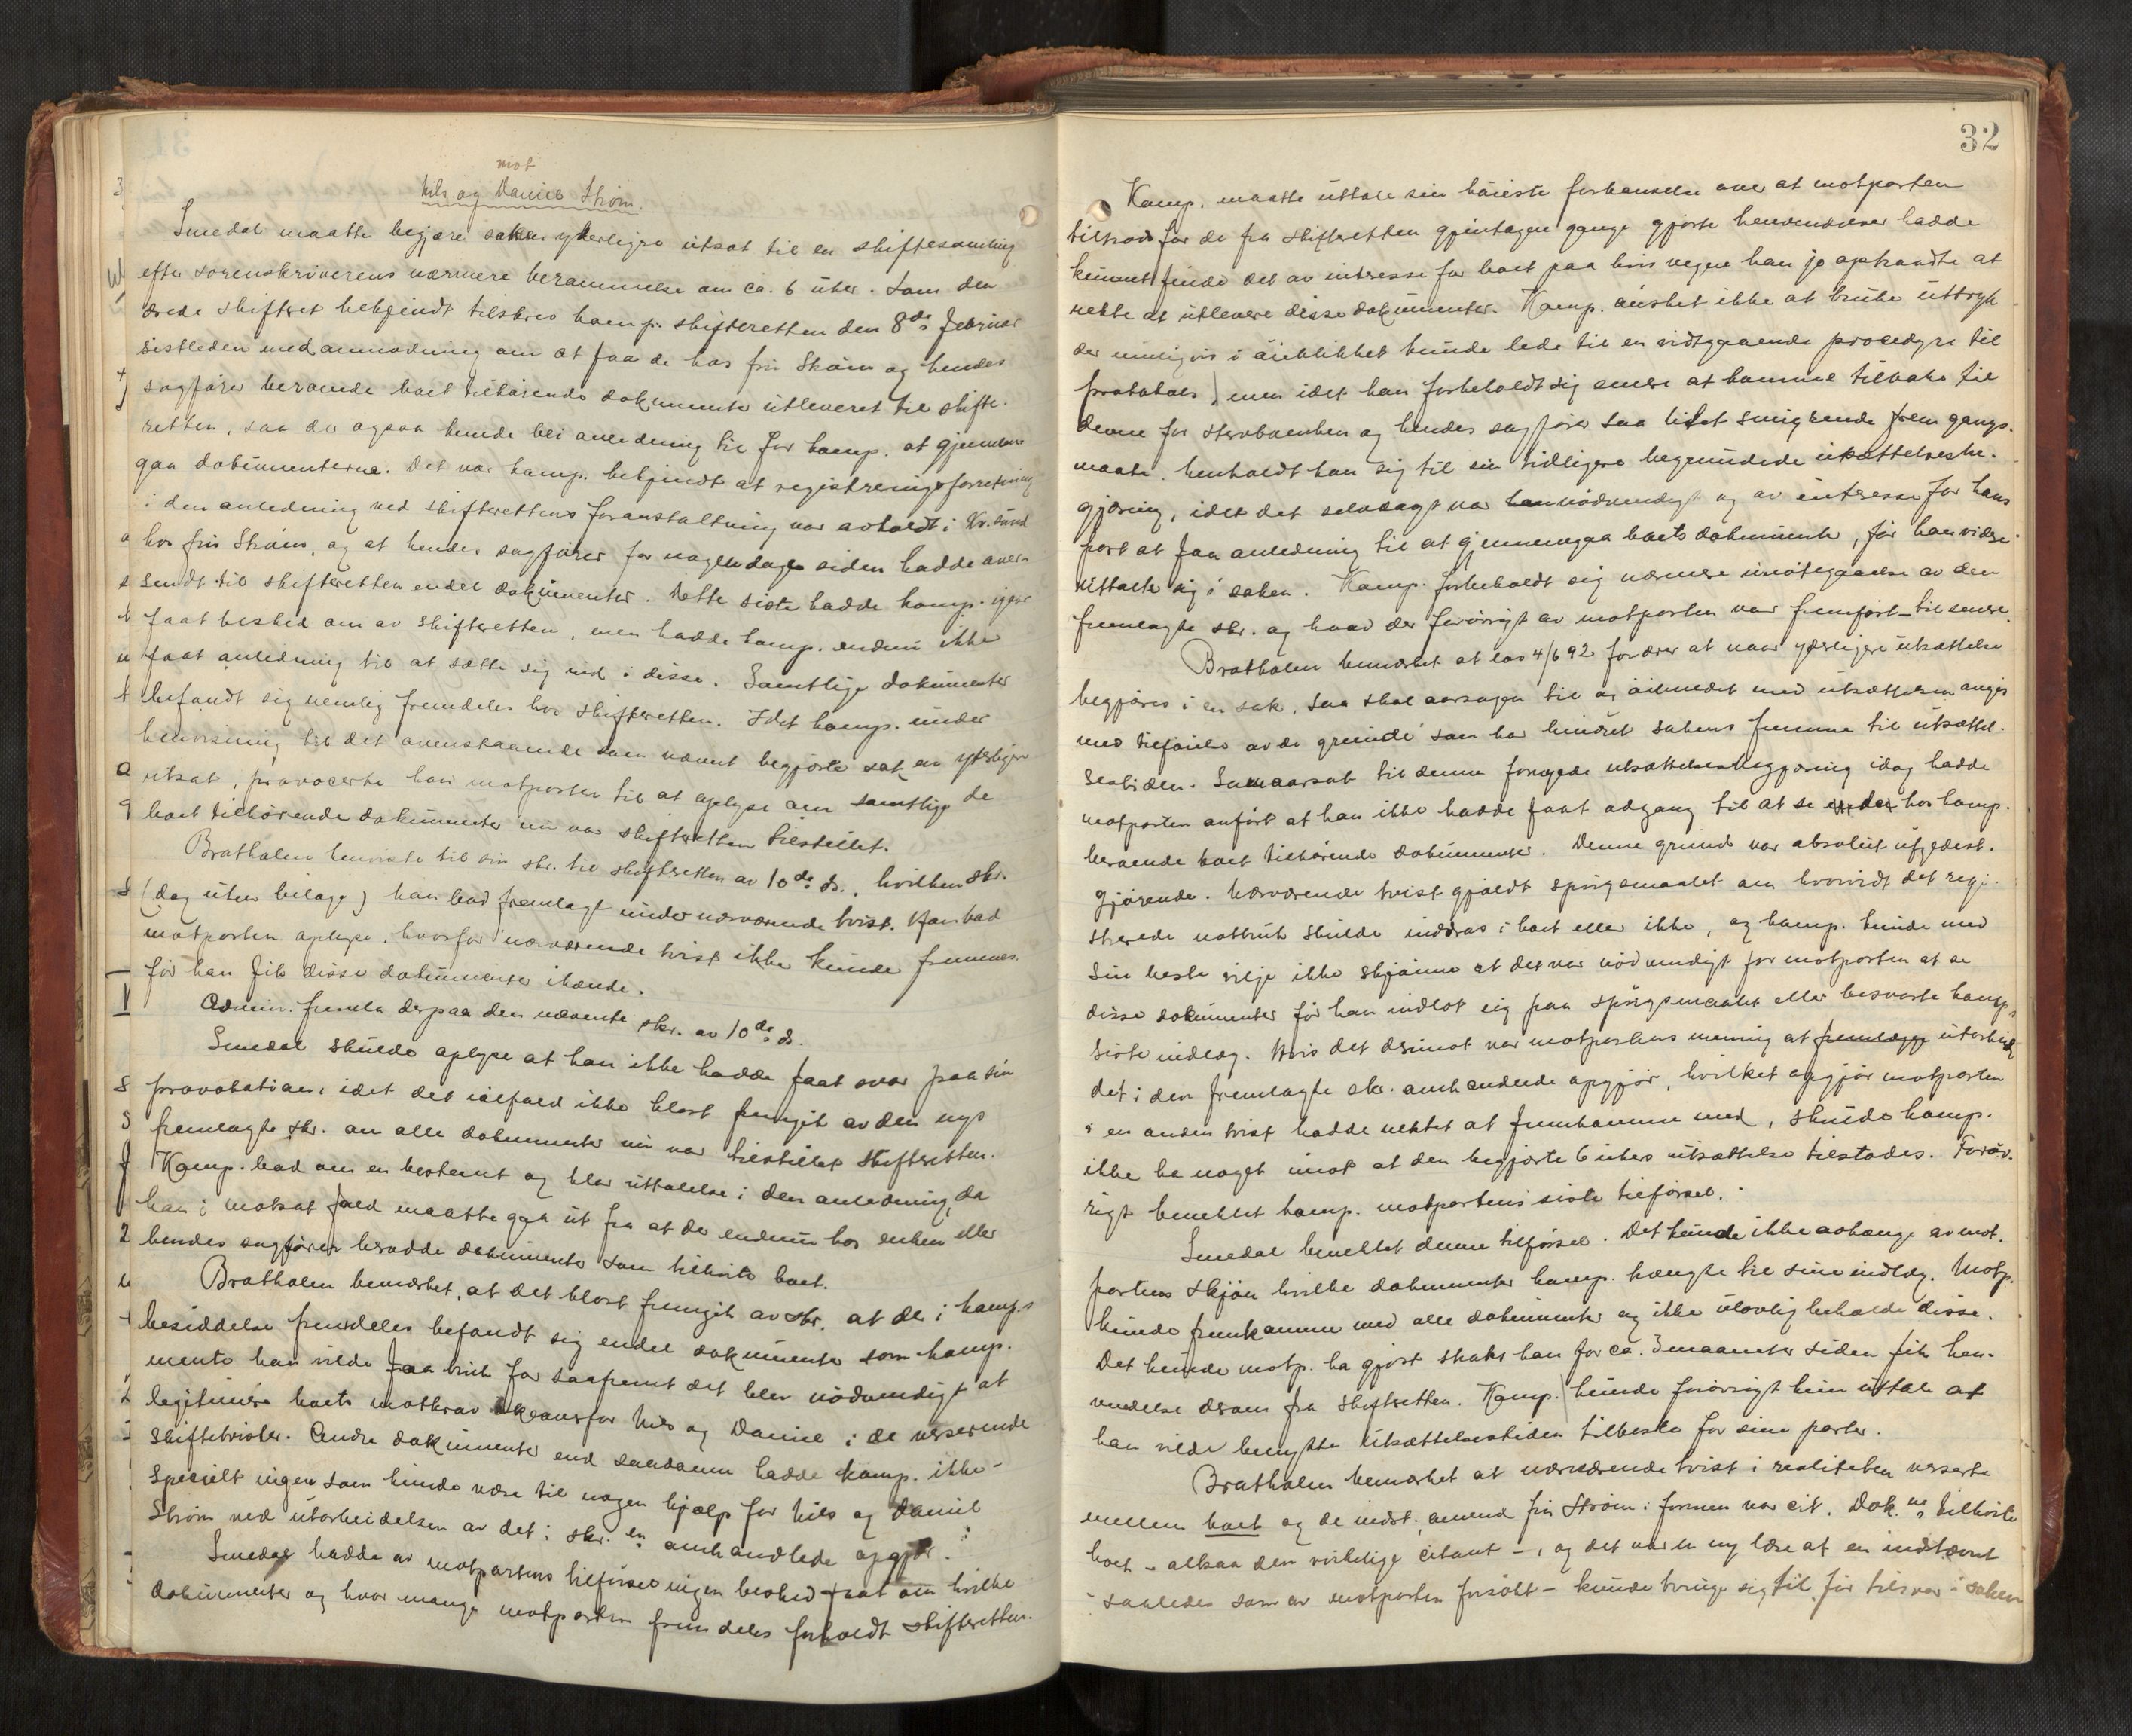 mot
Nils og Daniel Strøm.
Smedal maatte begjære saken yderligre utsat til en skiftesamling
efter sorenskriverens nærmere berammelse om ca. 6 uker. Som den
ærede skifteret bekjendt tilskrev komp. skifteretten den 8de februar
sistleden med anmodning om at faa de hos fru Strøm og hendes
sagfører beroende boet tilhørende dokumenter utleveret til skifte-
retten, saa der ogsaa kunde bli anledning til for komp. at gjennem-
gaa dokumenterne. Det var komp. bekjendt at registreringsforretning
i den anledning ved skifterettens foranstaltning var avholdt i Kr.sund
hos fru Strøm, og at hendes sagfører for nogen dage siden hadde over-
sendt til skifteretten endel dokumenter. Dette siste hadde komp. igaar
faat besked om av skifteretten, men hadde komp. endnu ikke
faat anledning til at sætte sig ind i disse. Samtlige dokumenter
befandt sig nemlig fremdeles hos skifteretten. Idet komp. under
henvisning til det ovenstaaende som nævnt begjærte saken yderligere
utsat, provocerte han motparten til at oplyse om samtlige de
boet tilhørende dokumenter nu var skifteretten tilstillet.
Bratholm henviste til sin skr. til skifteretten av 10de ds., hvilken skr.
(dog uten bilage) han bad fremlagt under nærværende tvist. Han bad
motparten oplyse, hvorfor nærværende tvist ikke kunde fremmes
før han fik disse dokumenter ihænde.
Admin. fremla derpaa den nævnte skr. av 10de ds.
Smedal skulde oplyse at han ikke hadde faat svar paa sin
provokation, idet det ialfald ikke klart fremgik av den nys
fremlagte skr. om alle dokumenter nu var tilstillet skifteretten.
Komp. bad om en bestemt og klar uttalelse i den anledning, da
han i motsat fald maatte gaa ut fra at der endnu hos enken eller
hendes sagfører beroede dokumenter som tilhørte boet.
Bratholm bemærket, at det klart fremgik av skr. at der i komp.s
besiddelse fremdeles befandt sig endel dokumenter som komp.
mente han vilde faa bruk for saafremt det blev nødvendigt at
legitimere boets motkrav likeoverfor Nils og Daniel i de verserende
skiftetvister. Andre dokumenter end saadanne hadde komp. ikke -
specielt ingen som kunde være til nogen hjælp for Nils og Daniel
Strøm ved utarbeidelsen av det i skr. en omhandlede opgjør.
Smedal hadde av motpartens tilførsel ingen besked faat om hvilke
dokumenter og hvor mange motparten fremdeles forholdt skifteretten.
32
Komp. maatte uttale sin høieste forbauselse over at motparten
tiltrods for de fra skifteretten gjentagne gange gjorte henvendelser hadde
kunnet finde det av interesse for boet paa hvis vegne han jo optraadte at
nekte at utlevere disse dokumenter. Komp. ønsket ikke at bruke uttryk
der muligvis i øieblikket kunde lede til en vidtgaaende procedyre til
protokols, men idet han forbeholdt sig senere at komme tilbake til
denne for sterboenken og hendes sagfører saa litet smigrende frem gangs-
maate, henholdt han sig til sin tidligere begrundede utsættelsesbe-
gjæring, idet det selvsagt var nødvendigt og av interesse for hans
part at faa anledning til at gjennemgaa boets dokumenter, før han videre
uttalte sig i saken. Komp. forbeholdt sig nærmere imøtegaaelse av den
fremlagte skr. og hvad der forøvrigt av motparten var fremført til senere.
Bratholm bemærket at lov 4/6 92 fordrer at naar yderligere utsættelse
begjæres i en sak, saa skal aarsagen til og øiemedet med utsættelsen angis
med tilføielse av de grunde som har hindret sakens fremme til utsættel-
sestiden. Som aarsak til denne fornyede utsættelsesbegjæring idag hadde
motparten anført at han ikke hadde faat adgang til at se de hos komp.
beroende boet tilhørende dokumenter. Denne grund var absolut ufyldest-
gjørende. Nærværende tvist gjældt spørgsmaalet om hvorvidt det regi-
strerede notbruk skulde inddras i boet eller ikke, og komp. kunde med
sin beste vilje ikke skjønne at det var nødvendigt for motparten at se
disse dokumenter før han indlot sig paa spørgsmaalet eller besvarte komp.s
siste indlæg. Hvis det derimot var motpartens mening at utarbeide
det i den fremlagte skr. omhandlede opgjør, hvilket opgjør motparten
i en anden tvist hadde nektet at fremkomme med, skulde komp.
ikke ha noget imot at den begjærte 6 ukers utsættelse tilstodes. Forøv-
rigt benektet komp. motpartens siste tilførsel.
Smedal benektet denne tilførsel. Det kunde ikke avhænge av mot-
partens skjøn hvilke dokumenter komp. trængte til sine indlæg. Motp.
kunde fremkomme med alle dokumenter og ikke ulovlig beholde disse.
Det kunde motp. ha gjort straks han for ca. 3 maaneder siden fik hen-
vendelse derom fra skifteretten. Komp. kunde forøvrigt kun uttale at
han vilde benytte utsættelsestiden tilbeste for sine parter.
Bratholm bemærket at nærværende tvist i realiteten verserte
mellem boet og de indst., omend fru Strøm i formen var cit. Dok.ne tilhørte
boet - altsaa den virkelige citant -, og det var en ny lære at en indstevnt
saaledes som av motparten forsøkt - kunde tvinge sig til, før tilsvar i saken